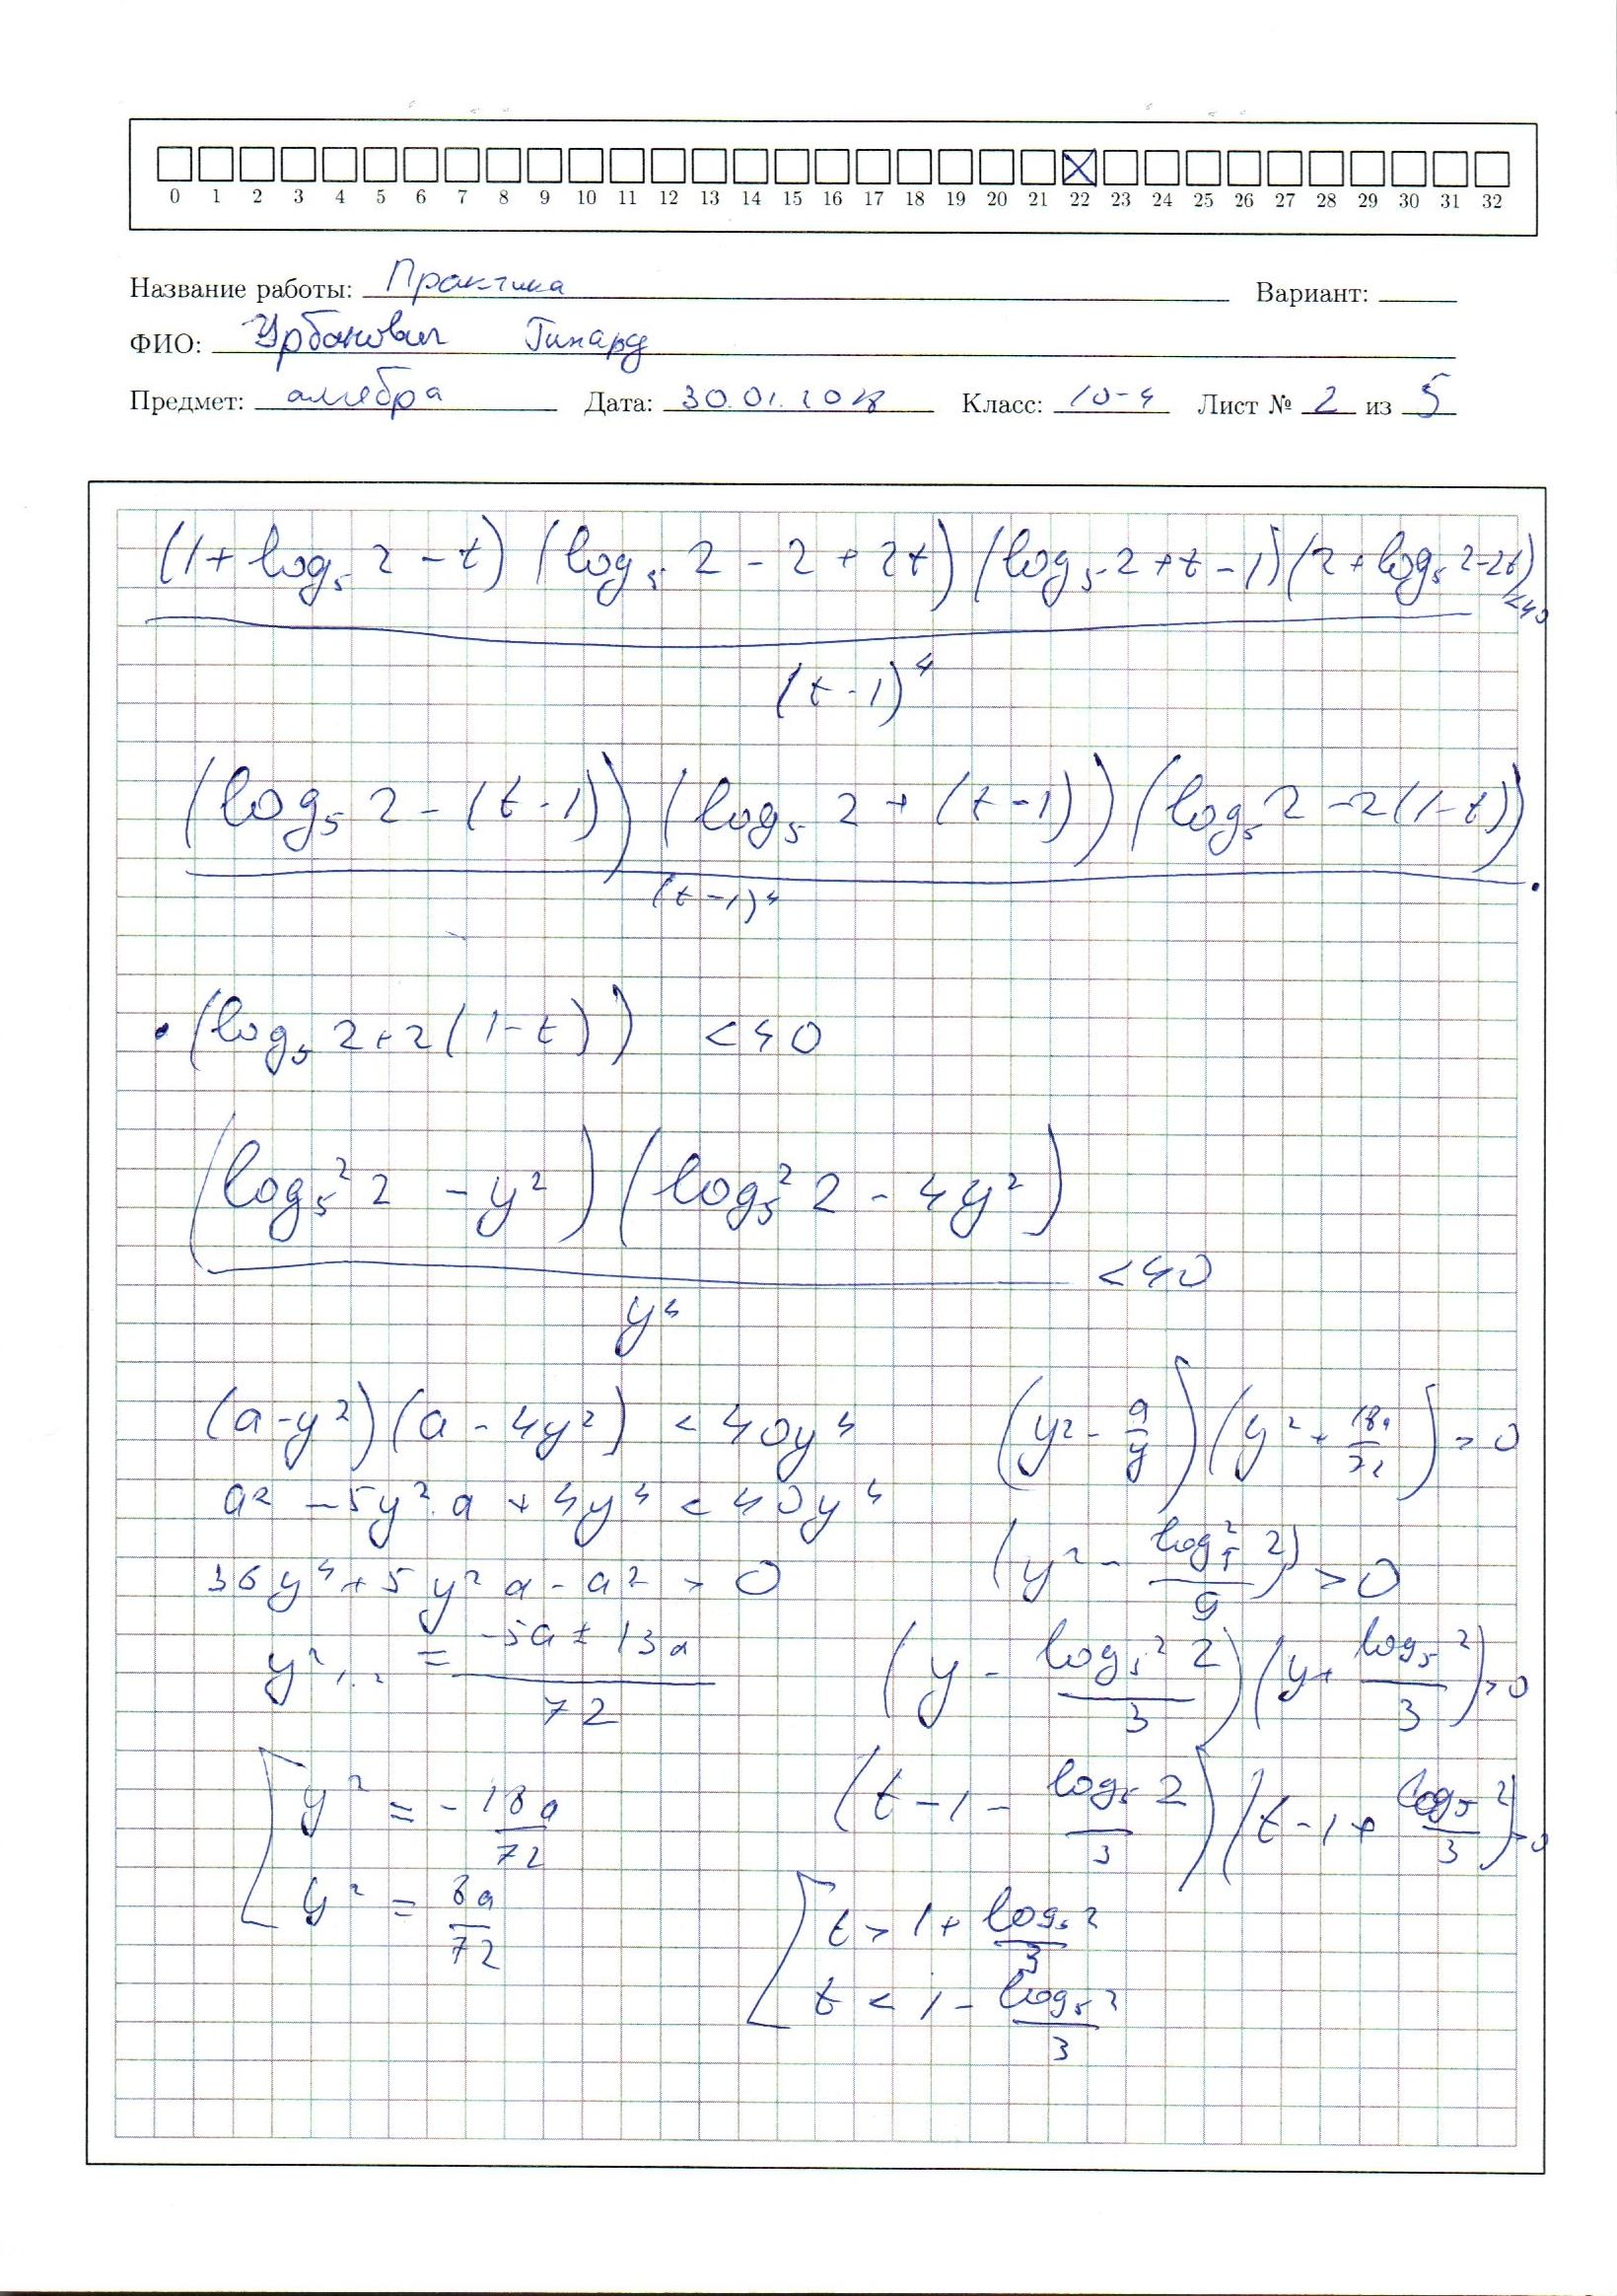 0 1 2 3 4 5 6 7 8 9 10 11 12 13 14 15 16 17 18 19 20 21 22 23 24 25 26 27 28 29 30 31 32
Название работы: Практика Вариант:
ФИО: Урбанович
Предмет: алгебра Дата: 30.01.2018 Класс: 10-4 Лист № 2 из 5
(1 + log₅ 2 - t) (log₅ 2 - 2 + 2t) (log₅ 2 + t - 1) (2 + log₅ 2 - 2t) < 40
(t - 1)⁴
(log₅ 2 - (t - 1)) (log₅ 2 + (t - 1)) (log₅ 2 - 2(1 - t)) ·
(t - 1)⁴
· (log₅ 2 + 2(1 - t)) < 40
(log₅² 2 - y²) (log₅² 2 - 4y²)
< 40
y⁴
(a - y²)(a - 4y²) < 40y⁴
a² - 5y²·a + 4y⁴ < 40y⁴
36y⁴ + 5y²a - a² > 0
y²₁,₂ = (-5a ± 13a)/72
y² = -18a/72
y² = 8a/72
(y² - a/9)(y² + 18a/72) > 0
(y² - log₅² 2/9) > 0
(y - log₅² 2/3)(y + log₅ 2/3) > 0
(t - 1 - log₅ 2/3)(t - 1 + log₅ 2/3) > 0
t > 1 + log₅ 2/3
t < 1 - log₅ 2/3